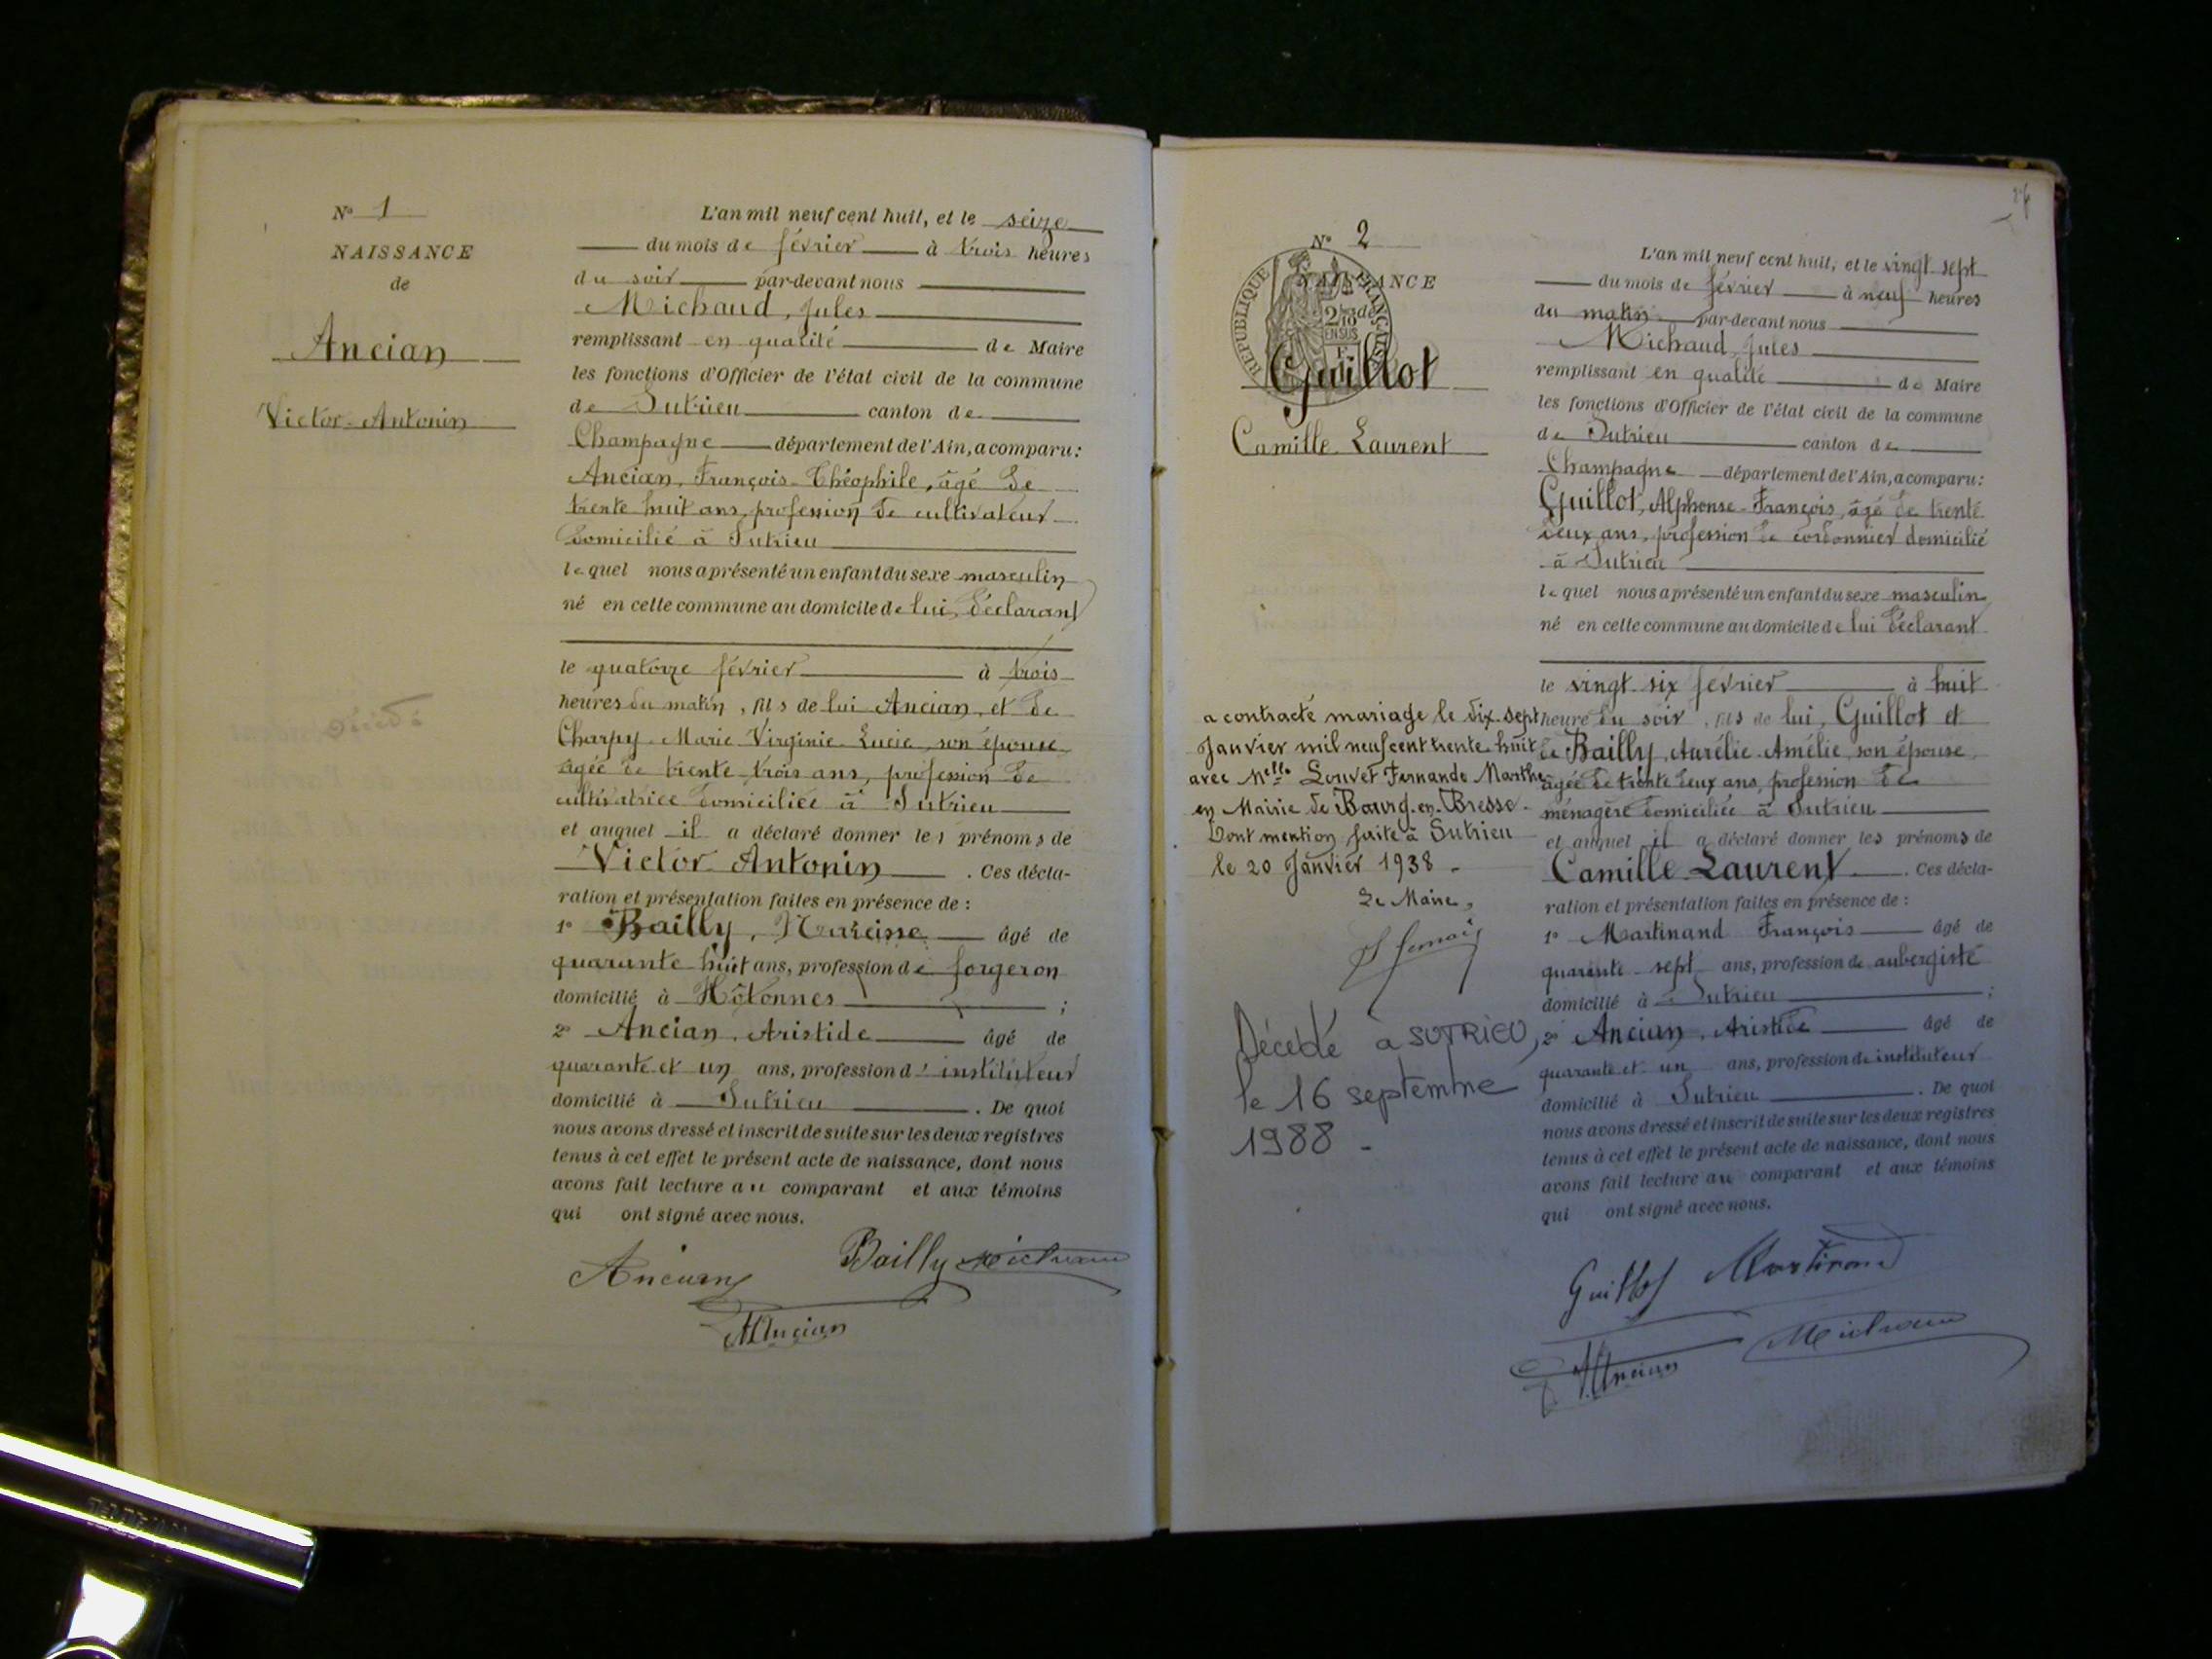 N° 1
NAISSANCE
de
Ancian
Victor-Antonin
L'an mil neuf cent huit, et le seize
du mois de février à trois heures
du soir par-devant nous
Michaud, Jules
remplissant en qualité de Maire
les fonctions d'Officier de l'état civil de la commune
de Sutrieu canton de
Champagne département de l'Ain, a comparu :
Ancian, François-Théophile, âgé de
trente huit ans, profession de cultivateur
domicilié à Sutrieu
lequel nous a présenté un enfant du sexe masculin
né en cette commune au domicile de lui, déclarant
le quatorze février à trois
heures du matin, fils de lui Ancian, et de
Charpy Marie Virginie Lucie, son épouse
âgée de trente trois ans, profession de
cultivatrice domiciliée à Sutrieu
et auquel il a déclaré donner les prénoms de
Victor Antonin . Ces décla-
ration et présentation faites en présence de :
1° Bailly, Narcisse âgé de
quarante huit ans, profession de forgeron
domicilié à Hôtonnes ;
2° Ancian, Aristide âgé de
quarante et un ans, profession d'instituteur
domicilié à Sutrieu . De quoi
nous avons dressé et inscrit de suite sur les deux registres
tenus à cet effet le présent acte de naissance, dont nous
avons fait lecture au comparant et aux témoins
qui ont signé avec nous.
Ancian Bailly Michaud
Ancian
N° 2
NAISSANCE
REPUBLIQUE FRANÇAISE
2/10 de
EN SUS
Guillot
Camille Laurent
a contracté mariage le dix-sept
Janvier mil neuf cent trente huit
avec Melle Louvet Fernande Marthe
en Mairie de Bourg-en-Bresse.
Dont mention faite à Sutrieu
le 20 Janvier 1938.
Le Maire,
Décédé à SUTRIEU,
le 16 septembre
1988 -
L'an mil neuf cent huit, et le vingt sept
du mois de février à neuf heures
du matin par-devant nous
Michaud, Jules
remplissant en qualité de Maire
les fonctions d'Officier de l'état civil de la commune
de Sutrieu canton de
Champagne département de l'Ain, a comparu :
Guillot, Alphonse-François, âgé de trente
deux ans, profession de cordonnier domicilié
à Sutrieu
lequel nous a présenté un enfant du sexe masculin
né en cette commune au domicile de lui déclarant
le vingt six février à huit
heure du soir, fils de lui, Guillot et
de Bailly, Aurélie-Amélie, son épouse,
âgée de trente deux ans, profession de
ménagère domiciliée à Sutrieu
et auquel il a déclaré donner les prénoms de
Camille Laurent . Ces décla-
ration et présentation faites en présence de :
1° Martinand François âgé de
quarante sept ans, profession de aubergiste
domicilié à Sutrieu ;
2° Ancian, Aristide âgé de
quarante et un ans, profession de instituteur
domicilié à Sutrieu . De quoi
nous avons dressé et inscrit de suite sur les deux registres
tenus à cet effet le présent acte de naissance, dont nous
avons fait lecture au comparant et aux témoins
qui ont signé avec nous.
Guillot Martinand
Ancian Michaud